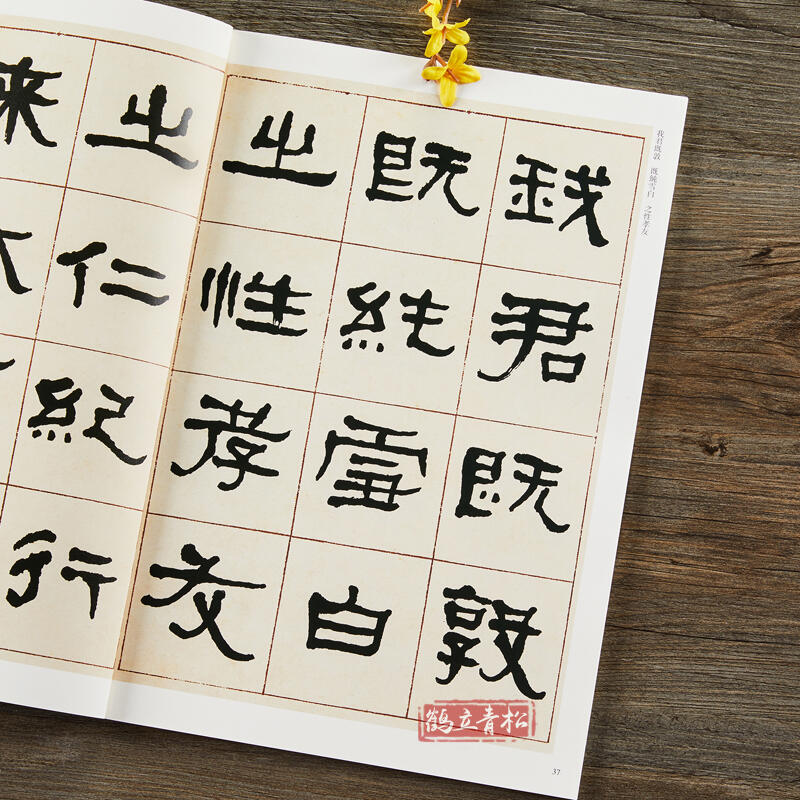 我君既敦 既純雪白 之性孝友
我君既敦
既純雪白
之性孝友
之仁紀行
来
鹤立青松
37